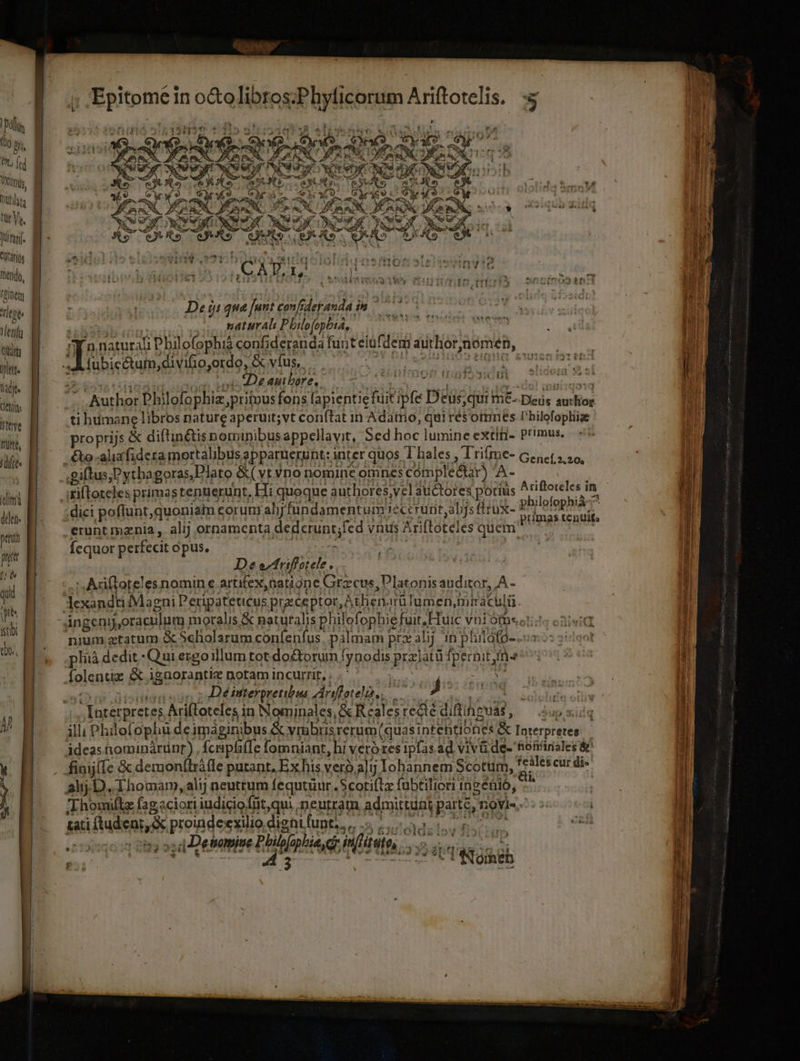 Epitome in octo libros Phyſicorum Ariſtotelis. 5
CAP. I.
De ijs quæ ſunt conſideranda in
naturali Philoſophiâ.
In naturali Philoſophiâ conſideranda ſunt eiuſdem author, nomen,
ſubiectum, diviſio, ordo, & vſus.
De authore.
Author Philoſophiæ, primus fons ſapientie fuit ipſe Deus, qui mē-
ti humane libros nature aperuit; vt conſtat in Adamo, qui res omnes
proprijs & diſtinctis nominibus appellavit, Sed hoc lumine extin-
cto alia ſidera mortalibus apparuerunt: inter quos Thales, Triſme-
giſtus, Pythagoras, Plato &( vt vno nomine omnes complectar) A-
riſtoteles primas tenuerunt, Hi quoque authores, vel auctores potius
dici poſſunt, quoniam eorum alij fundamentum iecerunt, alij ſtrux-
erunt mænia, alij ornamenta dederunt; ſed vnus Ariſtoteles quem
ſequor perfecit opus.
Deus author
Philoſophiæ
primus.
Geneſ. 2, 20,
Ariſtoteles in
philoſophiâ
primas tenuit.
De Ariſtotele.
Ariſtoteles nomine artifex, natione Græcus, Platonis auditor, A-
lexandri Magni Peripateticus præceptor, Athenarū lumen, miraculū
ingenij, oraculum moralis & naturalis philoſophie fuit, Huic vni om-
nium ætatum & Scholarum conſenſus palmam præ alij in philoſo-
phiâ dedit. Qui ergo illum tot doctorum ſynodis prælatū ſpernit, in-
ſolentiæ & ignorantiæ notam incurrit.
De interpretibus Ariſtotelis.
Interpretes Ariſtoteles in Nominales, & Reales rectè diſtinguas,
illi Philoſophū de imaginibus & vmbris rerum (quas intentiones &
ideas nominârunt) ſcripſiſſe ſomniant, hi verò res ipſas ad vivū de-
finijſſe & demonſtráſſe putant. Ex his verò alij Iohannem Scotum,
alij D. Thomam, alij neutrum ſequntur. Scotiſtæ ſubtiliori ingenio,
Thomiſtæ ſagaciori iudicio ſūt, qui neutram admittunt partē, novi-
tati ſtudent, & proinde exilio digni ſunt.
Interpretes
nominales &
reales cur di-
cti,
De nomine Philoſophiæ, & inſtituto,
A 3 Nomen